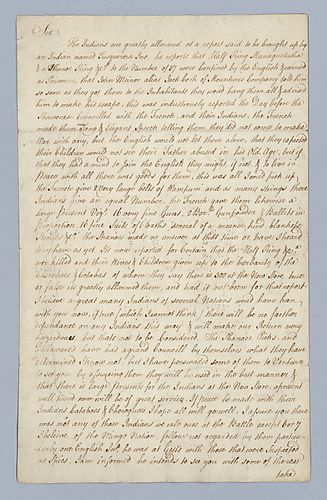 Sir.
The Indians are greatly allarmed at a report said to be brought up by
an Indian named he reports that Half King
& a Shanoe King &c to the Number of 27 were Confin'd by the English & carried
as Prisoners, that John Meinor alias Jack Cork of Mountures Company told him
so soon as they got them to the Inhabitants they wou'd hang them all, & advised
him to make his escape. this was industriously reported the Day before the
Shawonese Councelled with the French, and their Indians. the French
made them long & Elegant Speech telling them they did not come to make
War with any, but the English would not let them alone, that they expected
their Children would not see their Father abused in his Old Age, but if
that they had a mind to Join the English they might, if not & to live in
Peace with all there was goods for them, this was all I could pick up.
the French give 2 very large belts of Wampum and as many Strings there
Indians give an equal Number. the French gave them likewise a
large present 16 very fine Guns, 2 Gunpowder & Bullets in
Proportion, 16 fine Suits of Cloaths several of a meaner kind, blankets
&c. the Shanoes made no answer at that time or have I heard
they have as yet. Its now reported for Certain that the Half King &c
are killed and their Wives & Children given up to the barbarity of the
Cherokees & Catabas of whom they say there is 300 at the New Store. true
or false is greatly allarmed them, and had it not been for that report
I believe a great many Indians of several Nations wou'd have been
with you now, if true (which I cannot think) there will be no farther
dependance on any Indians this way & will make our Return very
hazardous but that's not to be Considered. The Shanoes Picks, and
Delawares have has a grand Council by themselves what they have
determin'd I know not, but I have persuaded some of them to Venture
to see you by assureing them they will be used in the best manner, &
that there is large presents for the Indians at the New Store. a present
well timed now will be of great service. if peace be made with these
Indians Catabas & Cheroques I hope all will go well. I assure you there
was not any of those Indians we call ours at the Battle except 6 or 7
I believe of the Mingo Nation fellows not regarded by them particu-
larly one English Jno. he was at Gists with those that were suspected
as Spies. I am informed he intends to see you with some of them
take